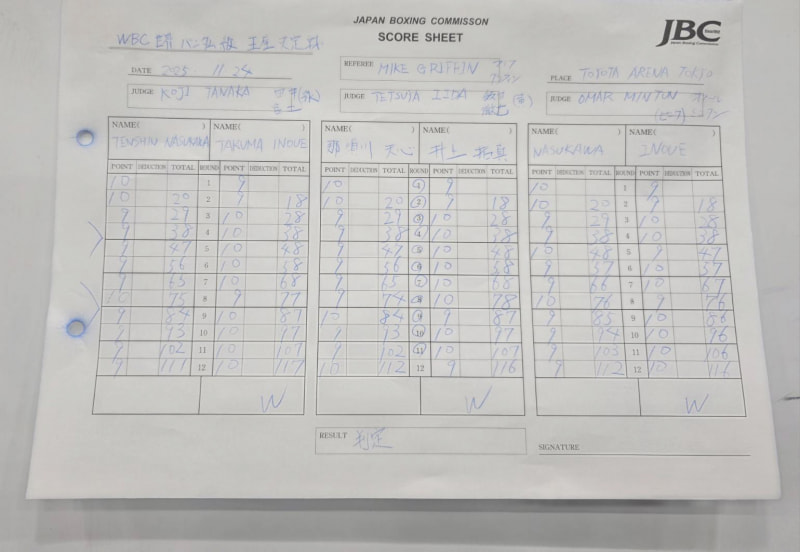 JAPAN BOXING COMMISSON
SCORE SHEET
JBC
WBC 王座決定戦
DATE 2025. 11. 24
REFEREE MIKE GRIFFIN
PLACE TOYOTA ARENA TOKYO
JUDGE KOJI TANAKA
JUDGE TETSUYA IIDA
JUDGE OMAR MINTUN
NAME( ) NAME( ) NAME( ) NAME( ) NAME( ) NAME( )
TENSHIN NASUKAWA TAKUMA INOUE 那須川 天心 井上 拓真 NASUKAWA INOUE
POINT DEDUCTION TOTAL ROUND POINT DEDUCTION TOTAL POINT DEDUCTION TOTAL ROUND POINT DEDUCTION TOTAL POINT DEDUCTION TOTAL ROUND POINT DEDUCTION TOTAL
10 1 9 10 1 9 10 1 9
10 20 2 9 18 10 20 2 9 18 10 20 2 9 18
9 29 3 10 28 9 29 3 10 28 9 29 3 10 28
9 38 4 10 38 9 38 4 10 38 9 38 4 10 38
9 47 5 10 48 9 47 5 10 48 10 48 5 9 47
9 56 6 10 58 9 56 6 10 58 9 57 6 10 57
9 65 7 10 68 9 65 7 10 68 9 66 7 10 67
10 75 8 9 77 9 74 8 10 78 10 76 8 9 76
9 84 9 10 87 10 84 9 9 87 9 85 9 10 86
9 93 10 10 97 9 93 10 10 97 9 94 10 10 96
9 102 11 10 107 9 102 11 10 107 9 103 11 10 106
9 111 12 10 117 10 112 12 9 116 9 112 12 10 116
W W W
RESULT 判定
SIGNATURE